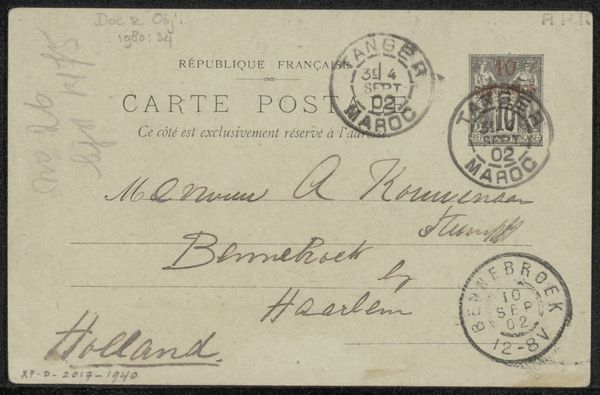 Doc & Obj.
1980:34
no 26
RÉPUBLIQUE FRANÇAISE
CARTE POSTALE
Ce côté est exclusivement réservé à l'adresse
TANGER
3E 4
SEPT
02
MAROC
10
10
TANGER
3E
SEPT
02
MAROC
Mevrouw A Kouwenaar
Bennebroek
by
Haarlem
Holland
BENNEBROEK
10
SEP
02
12-8V
RP-D-2017-1940